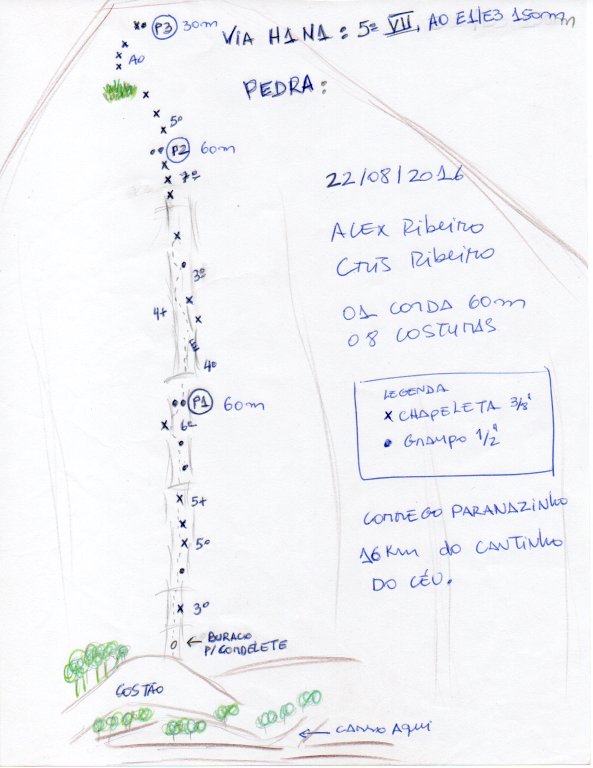 P3 30m
VIA HANA: 5º VII, A0 E1/E3 150m
A0
PEDRA:
5º
P2 60m
7º
22/08/2016
ALEX Ribeiro
CRIS Ribeiro
3º
4+
01 CORDA 60m
08 COSTURAS
E
4º
LEGENDA
x CHAPELETA 3/8"
• GRAMPO 1/2"
P1 60m
6º
5+
CORREGO PARANAZINHO
5º
16Km do CANTINHO
DO CÉU.
3º
← BURACO
P/ CORDELETE
COSTÃO
← CARRO AQUI